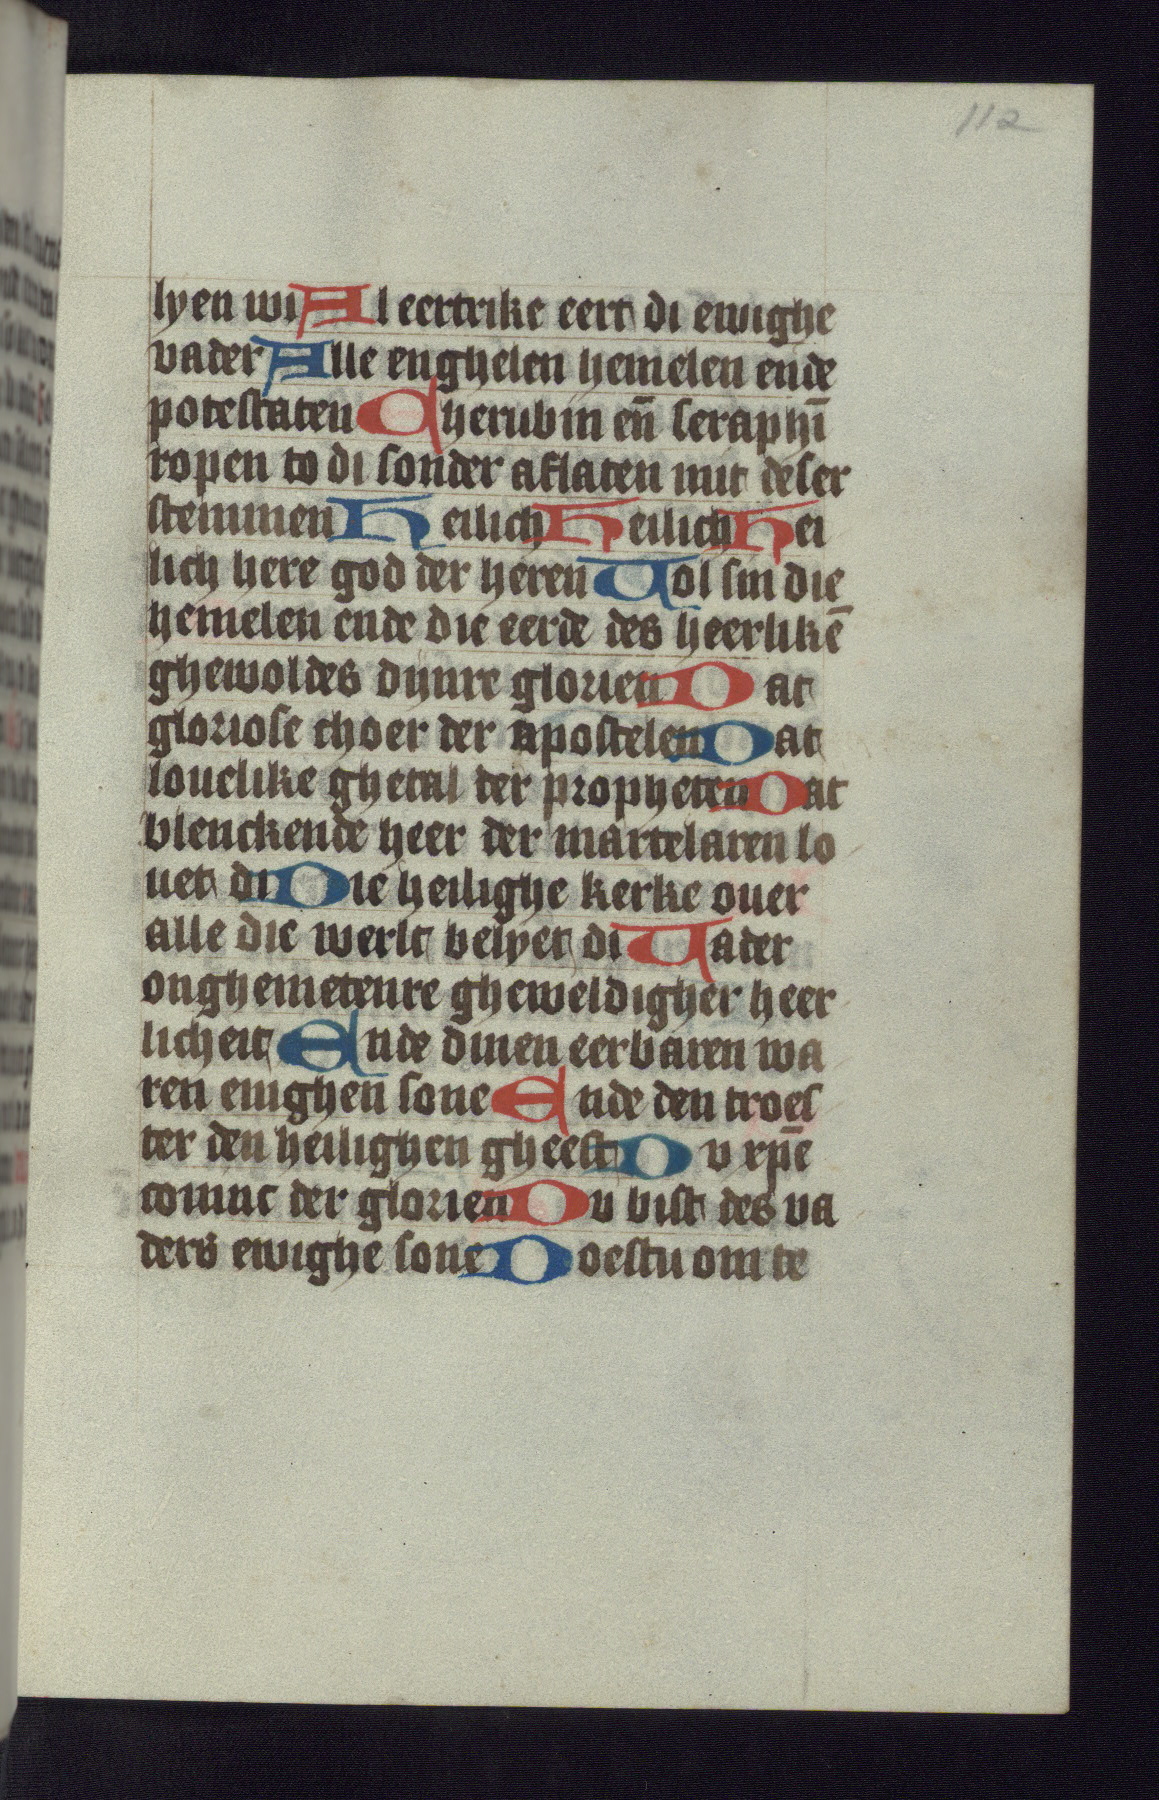 112
lyen wi Al eertrike eert di ewighe
vader Alle enghelen hemelen ende
potestaten Cherubin en̄ seraphī
ropen to di sonder aflaten mit deser
stemmen Heilich Heilich Hei
lich here god der heren Vol sin die
hemelen ende die eerde des heerlikē
ghewoldes dynre glorien Dat
gloriose choer der apostelen Dat
louelike ghetal der propheten Dat
blenckende heer der martelaren lo
uet di Die heilighe kerke ouer
alle die werlt belyet di Vader
onghemetenre gheweldigher heer
licheit Ende dinen eerbaren wa
ren enighen sone Ende den troes
ter den heilighen gheest Du xp̄e
coninc der glorien Du bist des va
ders ewighe sone Doestu om te